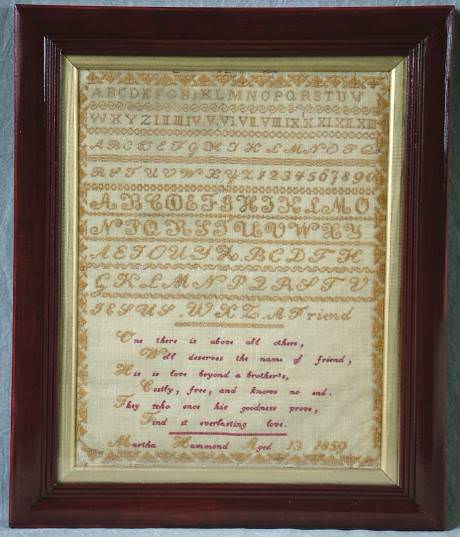 ABCDEFGHIKLMNOPQRSTUV
WXYZ I II III IV V VI VII VIII IX X XI XII XIII
ABCDEFGHIKLMNOPQ
RSTUVWXYZ1234567890
ABCDEFGHIKLMO
NPQRSTUVWXY
AEIOUYABCDFH
GKLMNPQRSTV
JESUS.WXZ.A Friend
One there is above all others,
Well deserves the name of friend,
His is love beyond a brother's,
Costly, free, and knows no end.
They who once his goodness prove,
Find it everlasting love.
Martha Hammond Aged 13 1850